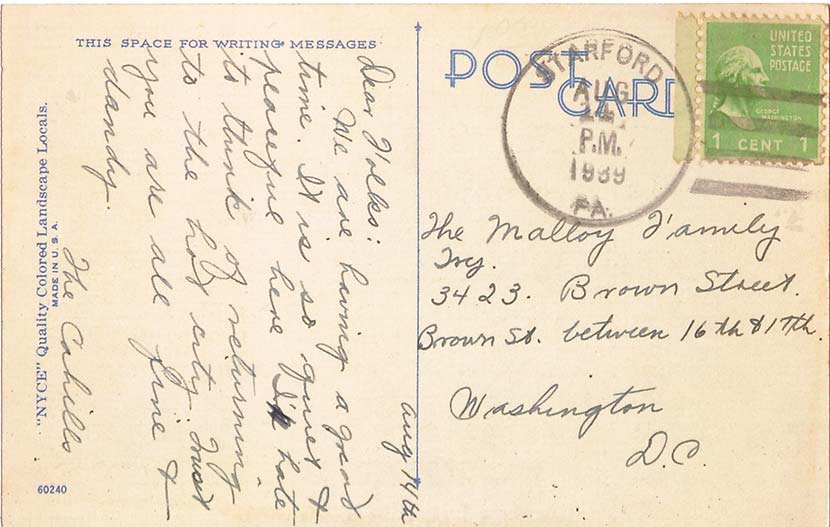 THIS SPACE FOR WRITING MESSAGES
Aug 14th
Dear Folks:
We are having a good
time. It is so quiet &
peaceful here I'd hate
to think of returning
to the hot city. Trust
you are all fine &
dandy.
The Cahills
"NYCE" Quality Colored Landscape Locals.
MADE IN U.S.A.
60240
POST CARD
STARFORD
AUG
14
P.M.
1939
PA.
UNITED
STATES
POSTAGE
GEORGE
WASHINGTON
1 CENT 1
The Malloy Family
Try.
3423. Brown Street.
Brown St. between 16th & 17th.
Washington
D.C.